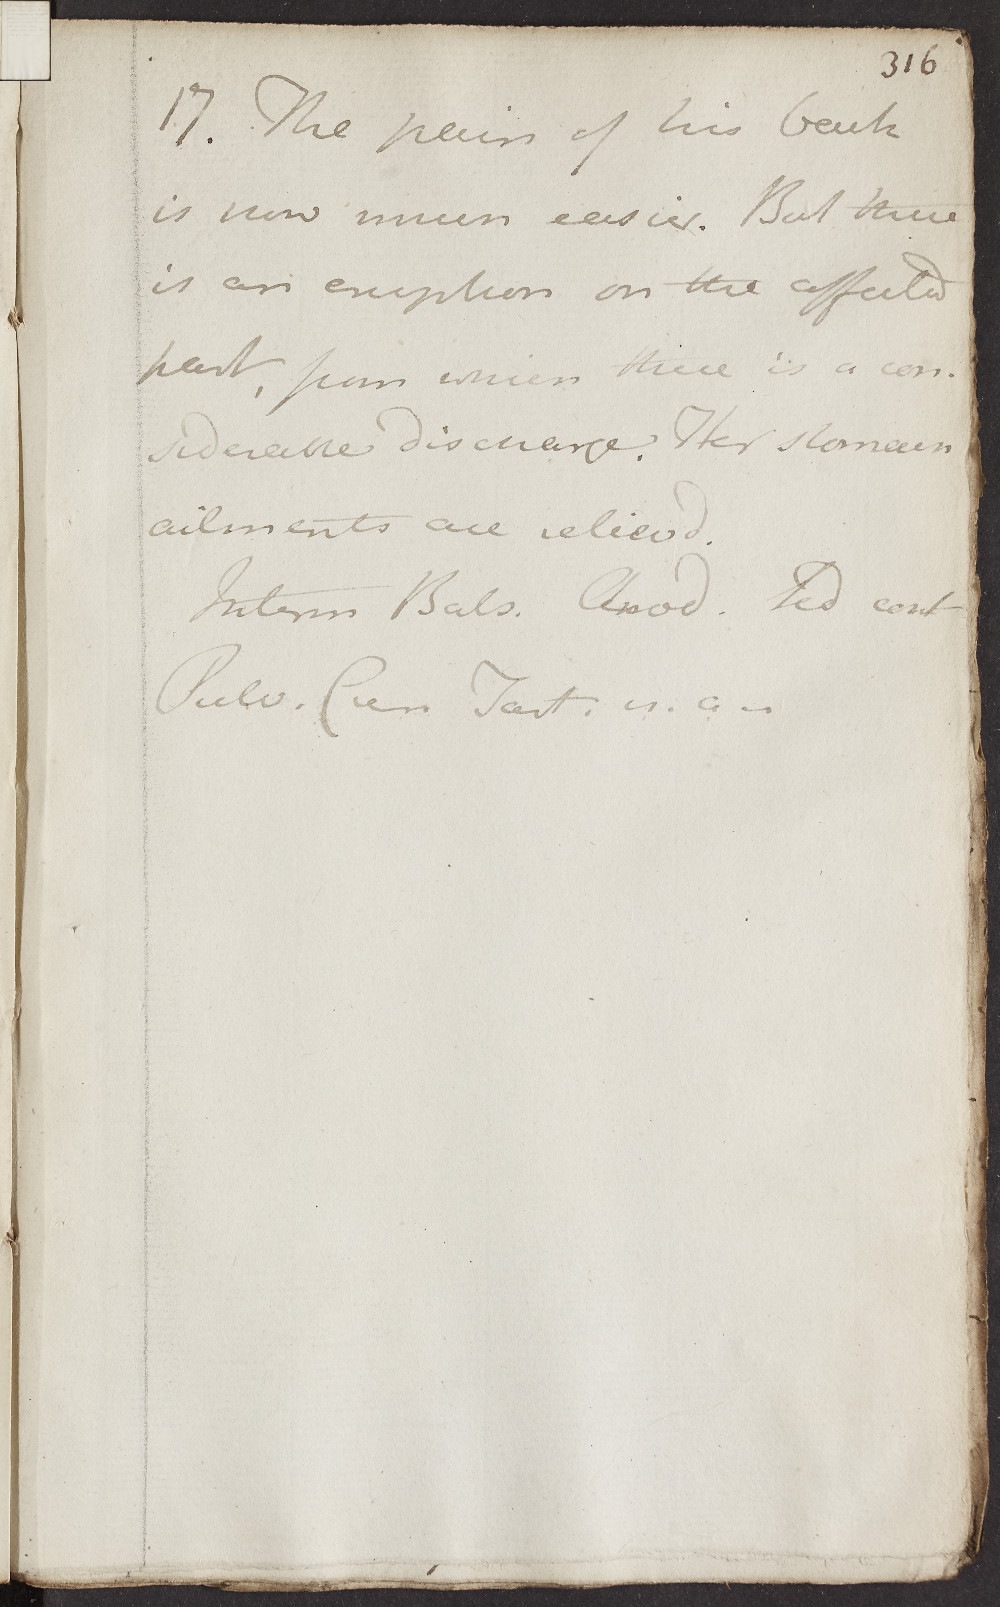 316
17. The pain of his back
is now much easier. But there
is an eruption on the affected
part, from which there is a con-
siderable discharge. Her stomach
ailments are relievd.
Interm Bals. Anod. Sed cont
Pulv. Crem Tart. u. a